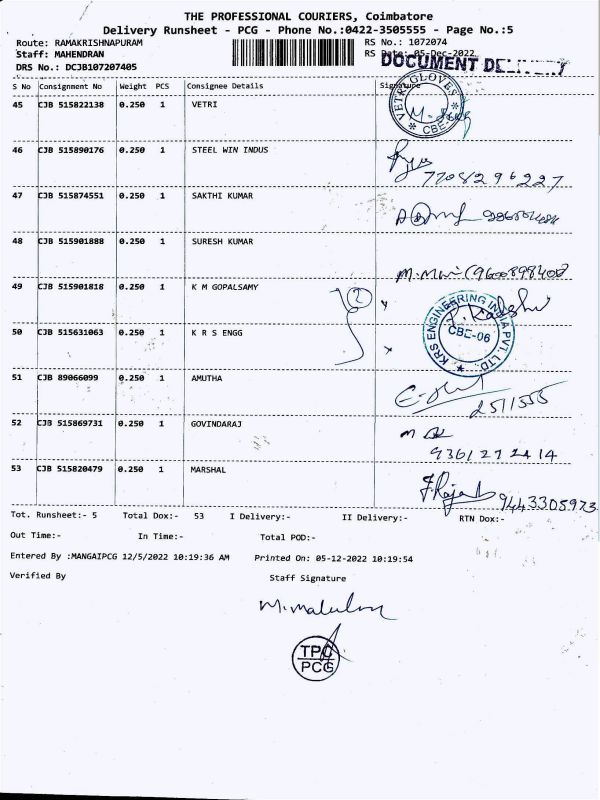 THE PROFESSIONAL COURIERS, Coimbatore
Delivery Runsheet - PCG - Phone No.:0422-3505555 - Page No.:5
Route: RAMAKRISHNAPURAM
RS No.: 1072074
Staff: MAHENDRAN
RS Date: 05-Dec-2022
DOCUMENT
DRS No.: DCJB107207405
S No Consignment No Weight PCS Consignee Details Signature
45 CJB 515822138 0.250 1 VETRI
VETRI GLOVES
CBE
46 CJB 515890176 0.250 1 STEEL WIN INDUS
7708296227
47 CJB 515874551 0.250 1 SAKTHI KUMAR
48 CJB 515901888 0.250 1 SURESH KUMAR
9600898408
49 CJB 515901818 0.250 1 K M GOPALSAMY
2
KRS ENGINEERING INDIA PVT. LTD.
CBE-06
50 CJB 515631063 0.250 1 K R S ENGG
51 CJB 89066099 0.250 1 AMUTHA
52 CJB 515869731 0.250 1 GOVINDARAJ
53 CJB 515820479 0.250 1 MARSHAL
9443305973
Tot. Runsheet:- 5 Total Dox:- 53 I Delivery:- II Delivery:- RTN Dox:-
Out Time:- In Time:- Total POD:-
Entered By :MANGAIPCG 12/5/2022 10:19:36 AM Printed On: 05-12-2022 10:19:54
Verified By Staff Signature
TPC
PCG